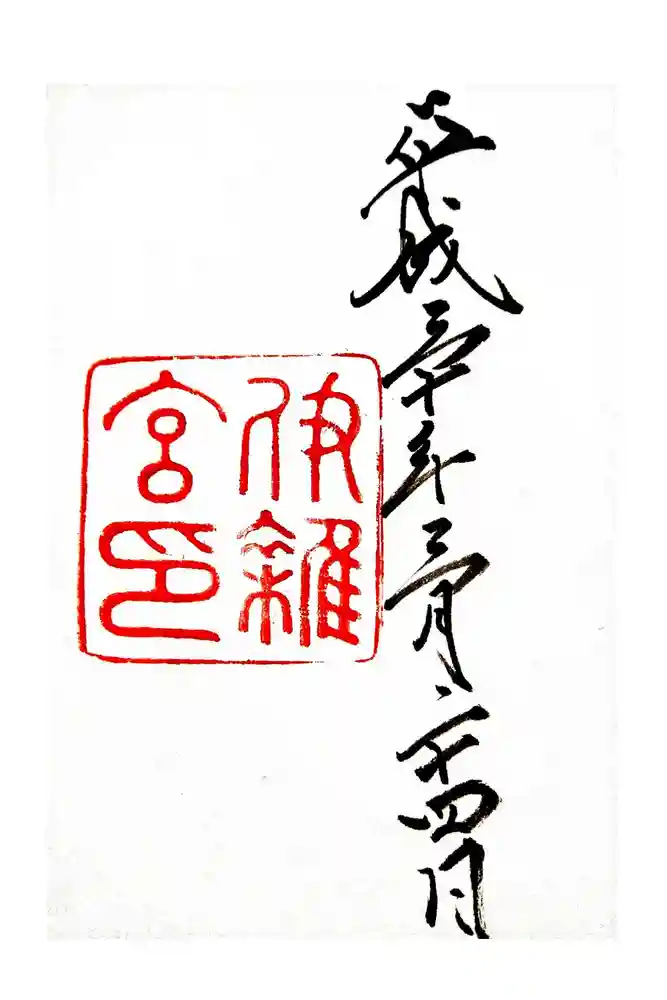 平成三十年三月二十四日
伊雜
宮印